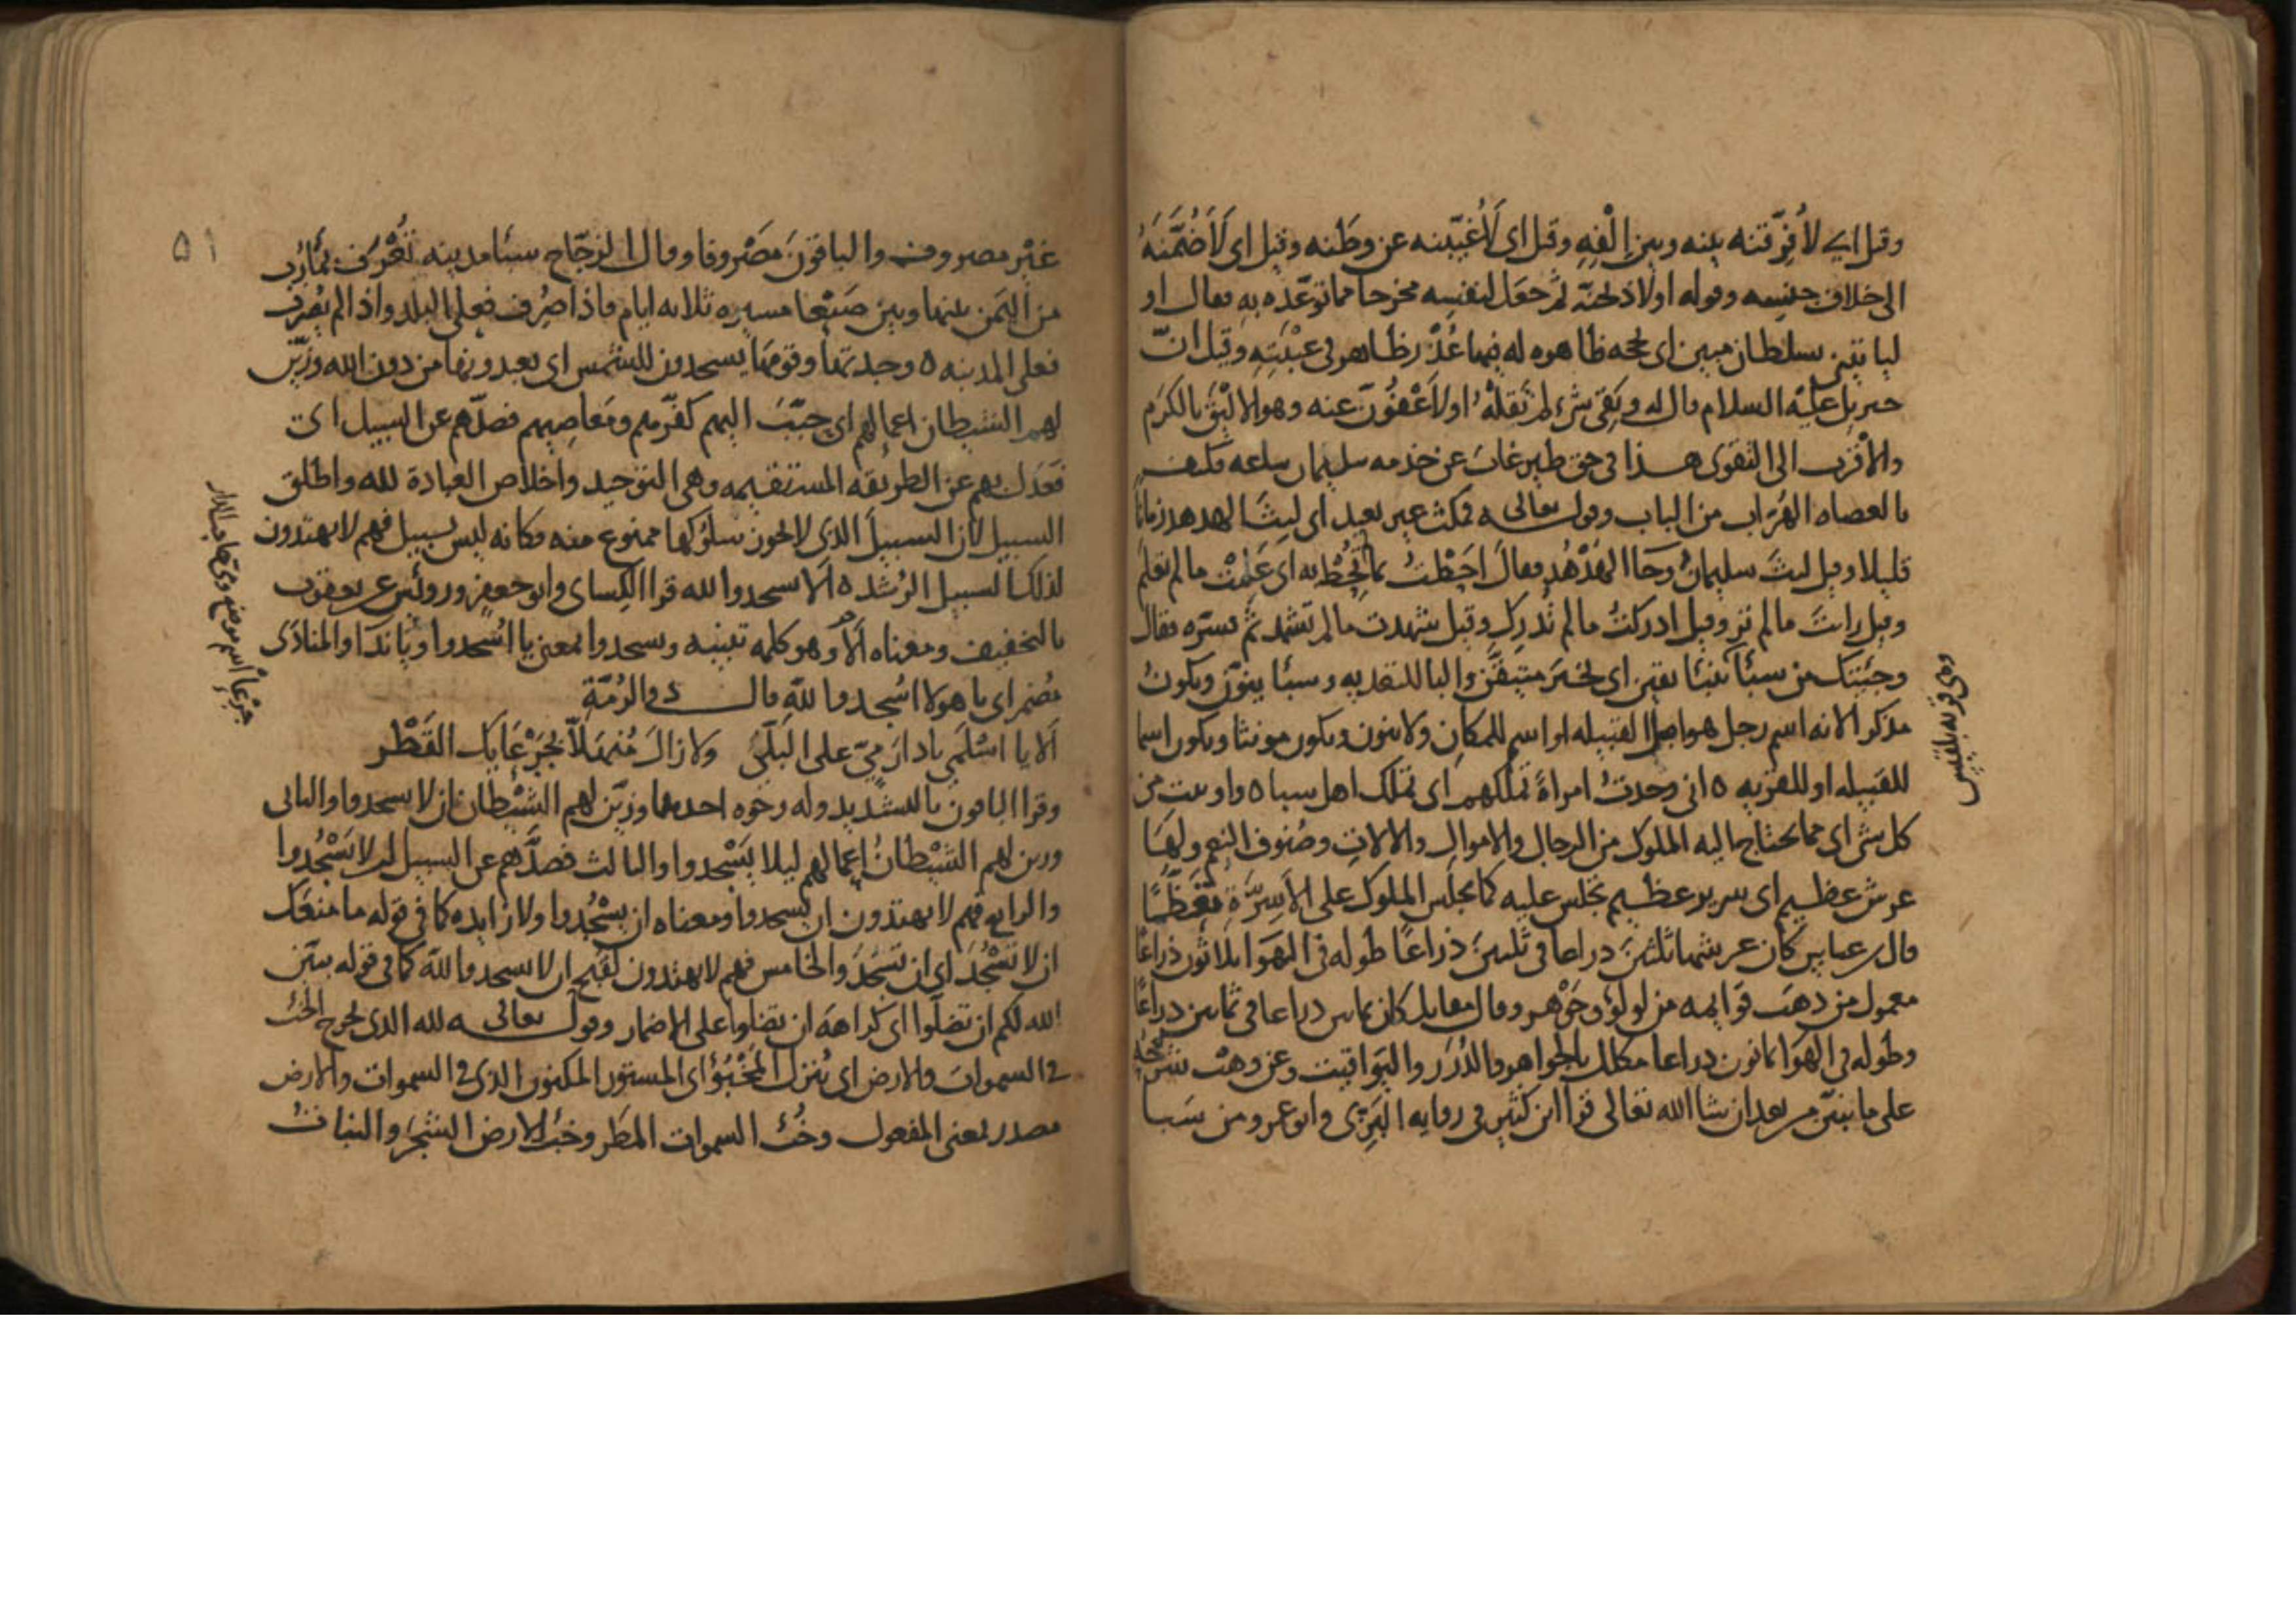 وقيل اي لأفرّقنه بينه وبين إلفه وقيل اي لأغيّبنه عن وطنه وقيل اي لأضمّنه
الى خلاف جنسه وقوله او لاذبحنه ثم جعل لنفسه مخرجا مما توعّده به فقال او
لياتيني بسلطان مبين اي بحجه ظاهره له فيها عذر ظاهر في غيبته وقيل انّ
جبريل عليه السلام قال له وبقي شيء لم تقله او لأعفونّ عنه وهو الاليق بالكرم
والاقرب الى التقوى هذا في حق طير غاب عن خدمه سليمان ساعه فكيف
بالعصاه الهراب من الباب وقوله تعالى فمكث غير بعيد اي لبث الهدهد زمانا
قليلا وقيل لبث سليمان وجاا الهدهد فقال احطت بما لم تحط به اي علمت ما لم تعلم
وقيل رايت ما لم تر وقيل ادركت ما لم تدرك وقيل شهدت ما لم تشهد ثم فسّره فقال
وجئتك من سبأ بنبأ يقين اي بخبر متيقن والبا للتعديه وسبأ ينوّن ويكون
مذكرا لانه اسم رجل هو اصل القبيله او اسم للمكان ولا ينون ويكون مونثا ويكون اسما
للقبيله او للقريه ه اني وجدت امراة تملكهم اي تملك اهل سبا ه واوتيت من
كل شي اي مما يحتاج اليه الملوك من الرجال والاموال والالات وصنوف النعم ولها
عرش عظيم اي سرير عظيم تجلس عليه كما يجلس الملوك على الاسرّة تعظّما
قال ابن عباس كان عرشها ثلثين ذراعا في ثلثين ذراعا طوله في الهوا ثلاثون ذراعا
معمول من ذهب قوايمه من لولو وجوهر وقال مقاتل كان ثمانين ذراعا في ثمانين ذراعا
وطوله في الهوا ثمانون ذراعا مكلل بالجواهر والدرر واليواقيت وعن وهب نشرحه
على ما نبين من بعد ان شا الله تعالى قرا ابن كثير في روايه البزي وابو عمرو من سبا
وهي قريه بلقيس
٥١
غير مصروف والباقون مصروفا وقال الزجّاج سبأ مدينه تعرف بمأرب
من اليمن بينها وبين صنعا مسيره ثلاثه ايام فاذا صرف فعلى البلد واذا لم يصرف
فعلى المدينه ه وجدتها وقومها يسجدون للشمس اي يعبدونها من دون الله وزيّن
لهم الشيطان اعمالهم اي حبّب اليهم كفرهم ومعاصيهم فصدّهم عن السبيل اي
فعدل بهم عن الطريقه المستقيمه وهي التوحيد واخلاص العبادة لله واطلق
السبيل لان السبيل الذي لا يجوز سلوكها ممنوع منه فكانه ليس بسبيل فهم لا يهتدون
لذلك السبيل الرشد ه ألا يسجدوا لله قرا الكساى وابو جعفر ورويس عن يعقوب
بالتخفيف ومعناه ألا وهو كلمه تنبيه ويسجدوا بمعنى يا اسجدوا ويا ندا والمنادى
مضمر اي يا هولا اسجدوا لله قال ذو الرمّة
ألا يا اسلمي يا دار ميّ على البلى ولا زال منهلّا بجرعايك القطر
وقرا الباقون بالتشديد وله وجوه احدها وزيّن لهم الشيطان ان لا يسجدوا والثاني
وزين لهم الشيطان اعمالهم ليلا يسجدوا والثالث فصدّهم عن السبيل لئلا يسجدوا
والرابع فهم لا يهتدون ان يسجدوا ومعناه ان يسجدوا ولا زايده كما في قوله ما منعك
ان لا تسجد اي ان تسجد والخامس فهم لا يهتدون لقبح ان لا يسجدوا لله كما في قوله يبين
الله لكم ان تضلوا اي كراهة ان تضلوا على الاضمار وقوله تعالى لله الذي يخرج الخبء
في السموات والارض اي ينزل المخبوؤ اي المستور المكنون الذي في السموات والارض
مصدر بمعنى المفعول وخبء السموات المطر وخبء الارض الشجر والنبات
جرعا اسم موضع وقع